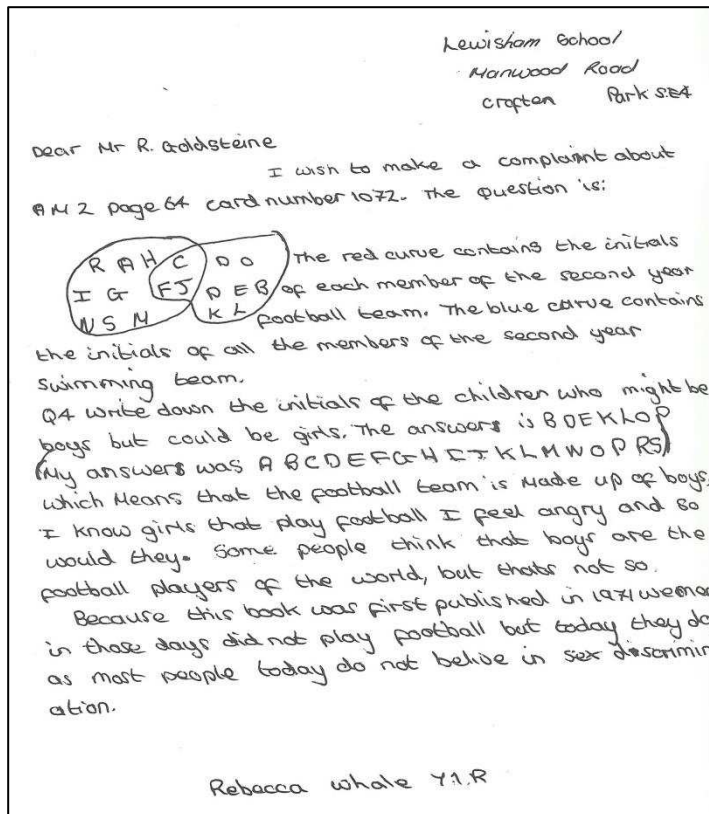 Lewisham School
Manwood Road
Crofton Park S.E4
Dear Mr R. Goldsteine
I wish to make a complaint about
A M 2 page 64 card number 1072. The question is:
R A H C D O The red curve contains the initials
I G F J D E B of each member of the second year
N S M K L football team. The blue curve contains
the initials of all the members of the second year
swimming team.
Q4 write down the initials of the children who might be
boys but could be girls. The answers is B D E K L O P
(My answers was A B C D E F G H I J K L M N O P R S)
which means that the football team is made up of boys.
I know girls that play football I feel angry and so
would they. Some people think that boys are the
football players of the world, but thats not so.
Because this book was first published in 1971 wemen
in those days did not play football but today they do
as most people today do not belive in sex discrimin
ation.
Rebecca Whale Y.1.R